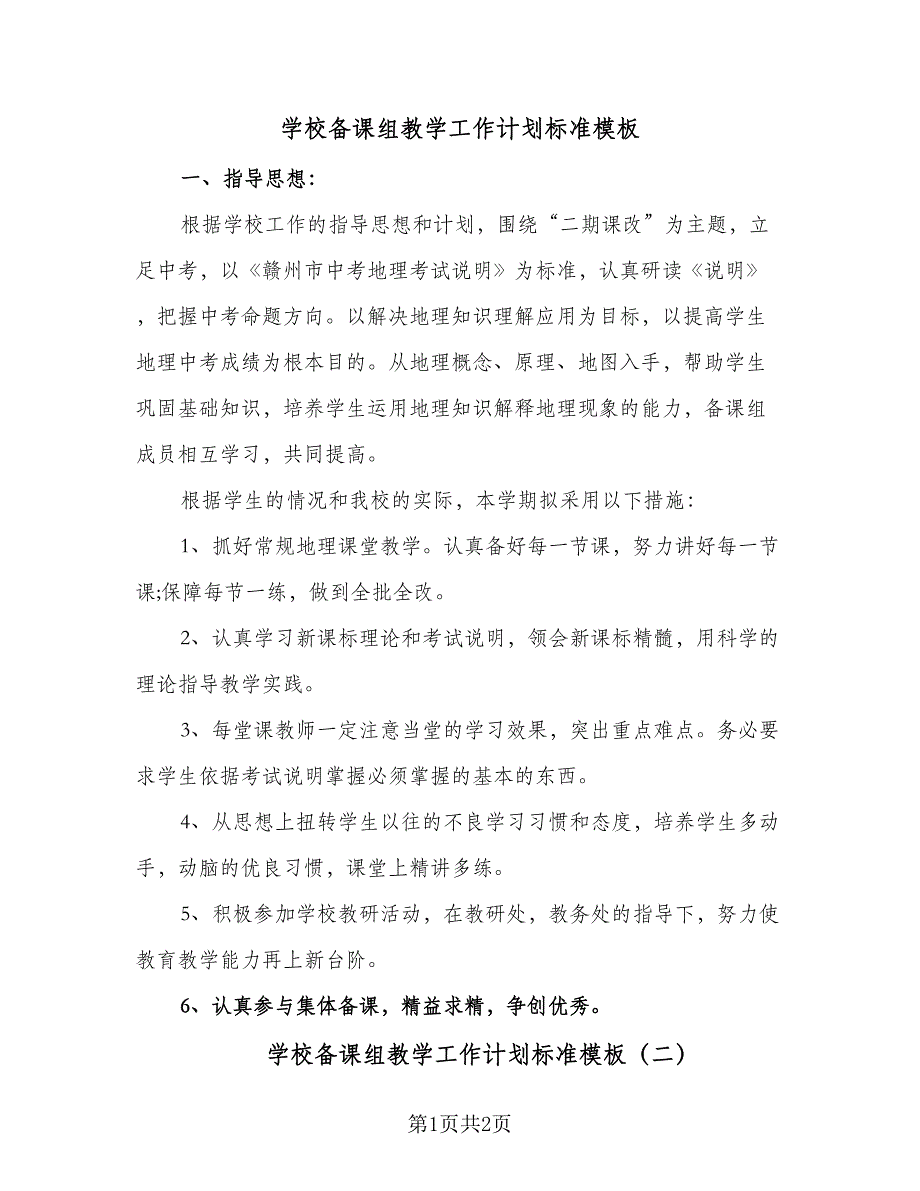 学校备课组教学工作计划标准模板
一、指导思想：
根据学校工作的指导思想和计划，围绕“二期课改”为主题，立
足中考，以《赣州市中考地理考试说明》为标准，认真研读《说明》
，把握中考命题方向。以解决地理知识理解应用为目标，以提高学生
地理中考成绩为根本目的。从地理概念、原理、地图入手，帮助学生
巩固基础知识，培养学生运用地理知识解释地理现象的能力，备课组
成员相互学习，共同提高。
根据学生的情况和我校的实际，本学期拟采用以下措施：
1、抓好常规地理课堂教学。认真备好每一节课，努力讲好每一节
课;保障每节一练，做到全批全改。
2、认真学习新课标理论和考试说明，领会新课标精髓，用科学的
理论指导教学实践。
3、每堂课教师一定注意当堂的学习效果，突出重点难点。务必要
求学生依据考试说明掌握必须掌握的基本的东西。
4、从思想上扭转学生以往的不良学习习惯和态度，培养学生多动
手，动脑的优良习惯，课堂上精讲多练。
5、积极参加学校教研活动，在教研处，教务处的指导下，努力使
教育教学能力再上新台阶。
6、认真参与集体备课，精益求精，争创优秀。
学校备课组教学工作计划标准模板（二）
第1页共2页